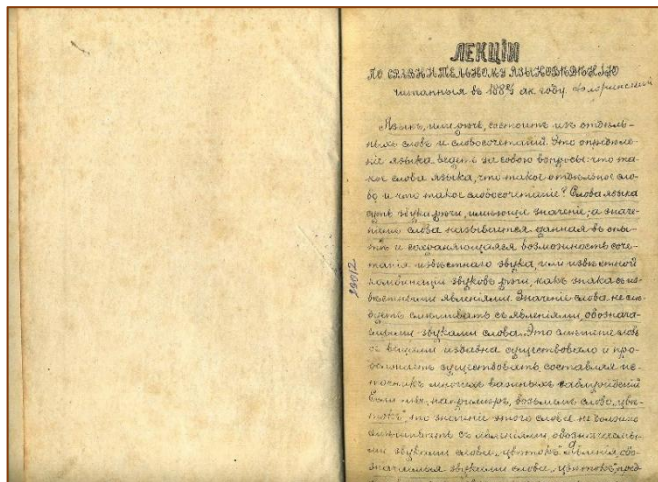 ЛЕКЦІИ
ПО СРАВНИТЕЛЬНОМУ ЯЗЫКОВѢДѢНІЮ
читанныя въ 188 ак. году.
Языкъ, или рѣчь, состоитъ изъ отдѣль-
ныхъ словъ и словосочетаній. Это опредѣле-
ніе языка ведетъ за собою вопросы: что та-
кое слова языка, что такое отдѣльное сло-
во и что такое словосочетаніе? Слова языка
суть звуки рѣчи, имѣющіе значеніе; а значе-
ніемъ слова называется данная въ опы-
тѣ и сохраняющаяся возможность соче-
танія извѣстнаго звука, или извѣстной
комбинаціи звуковъ рѣчи, какъ знака съ из-
вѣстными явленіями. Значеніе слова не слѣ-
дуетъ смѣшивать съ явленіями, обознача-
емыми звуками слова. Это смѣшеніе
съ вещами издавна существовало и про-
должаетъ существовать, составляя ис-
точникъ многихъ важныхъ заблужденій.
Если мы, напримѣръ, возьмемъ слово „цвѣ-
токъ“, то значеніе этого слова не должно
смѣшивать съ явленіями, обозначаемы-
ми звуками слова „цвѣтокъ“. Явленія, обо-
значаемыя звуками слова „цвѣтокъ“, пред-
19012